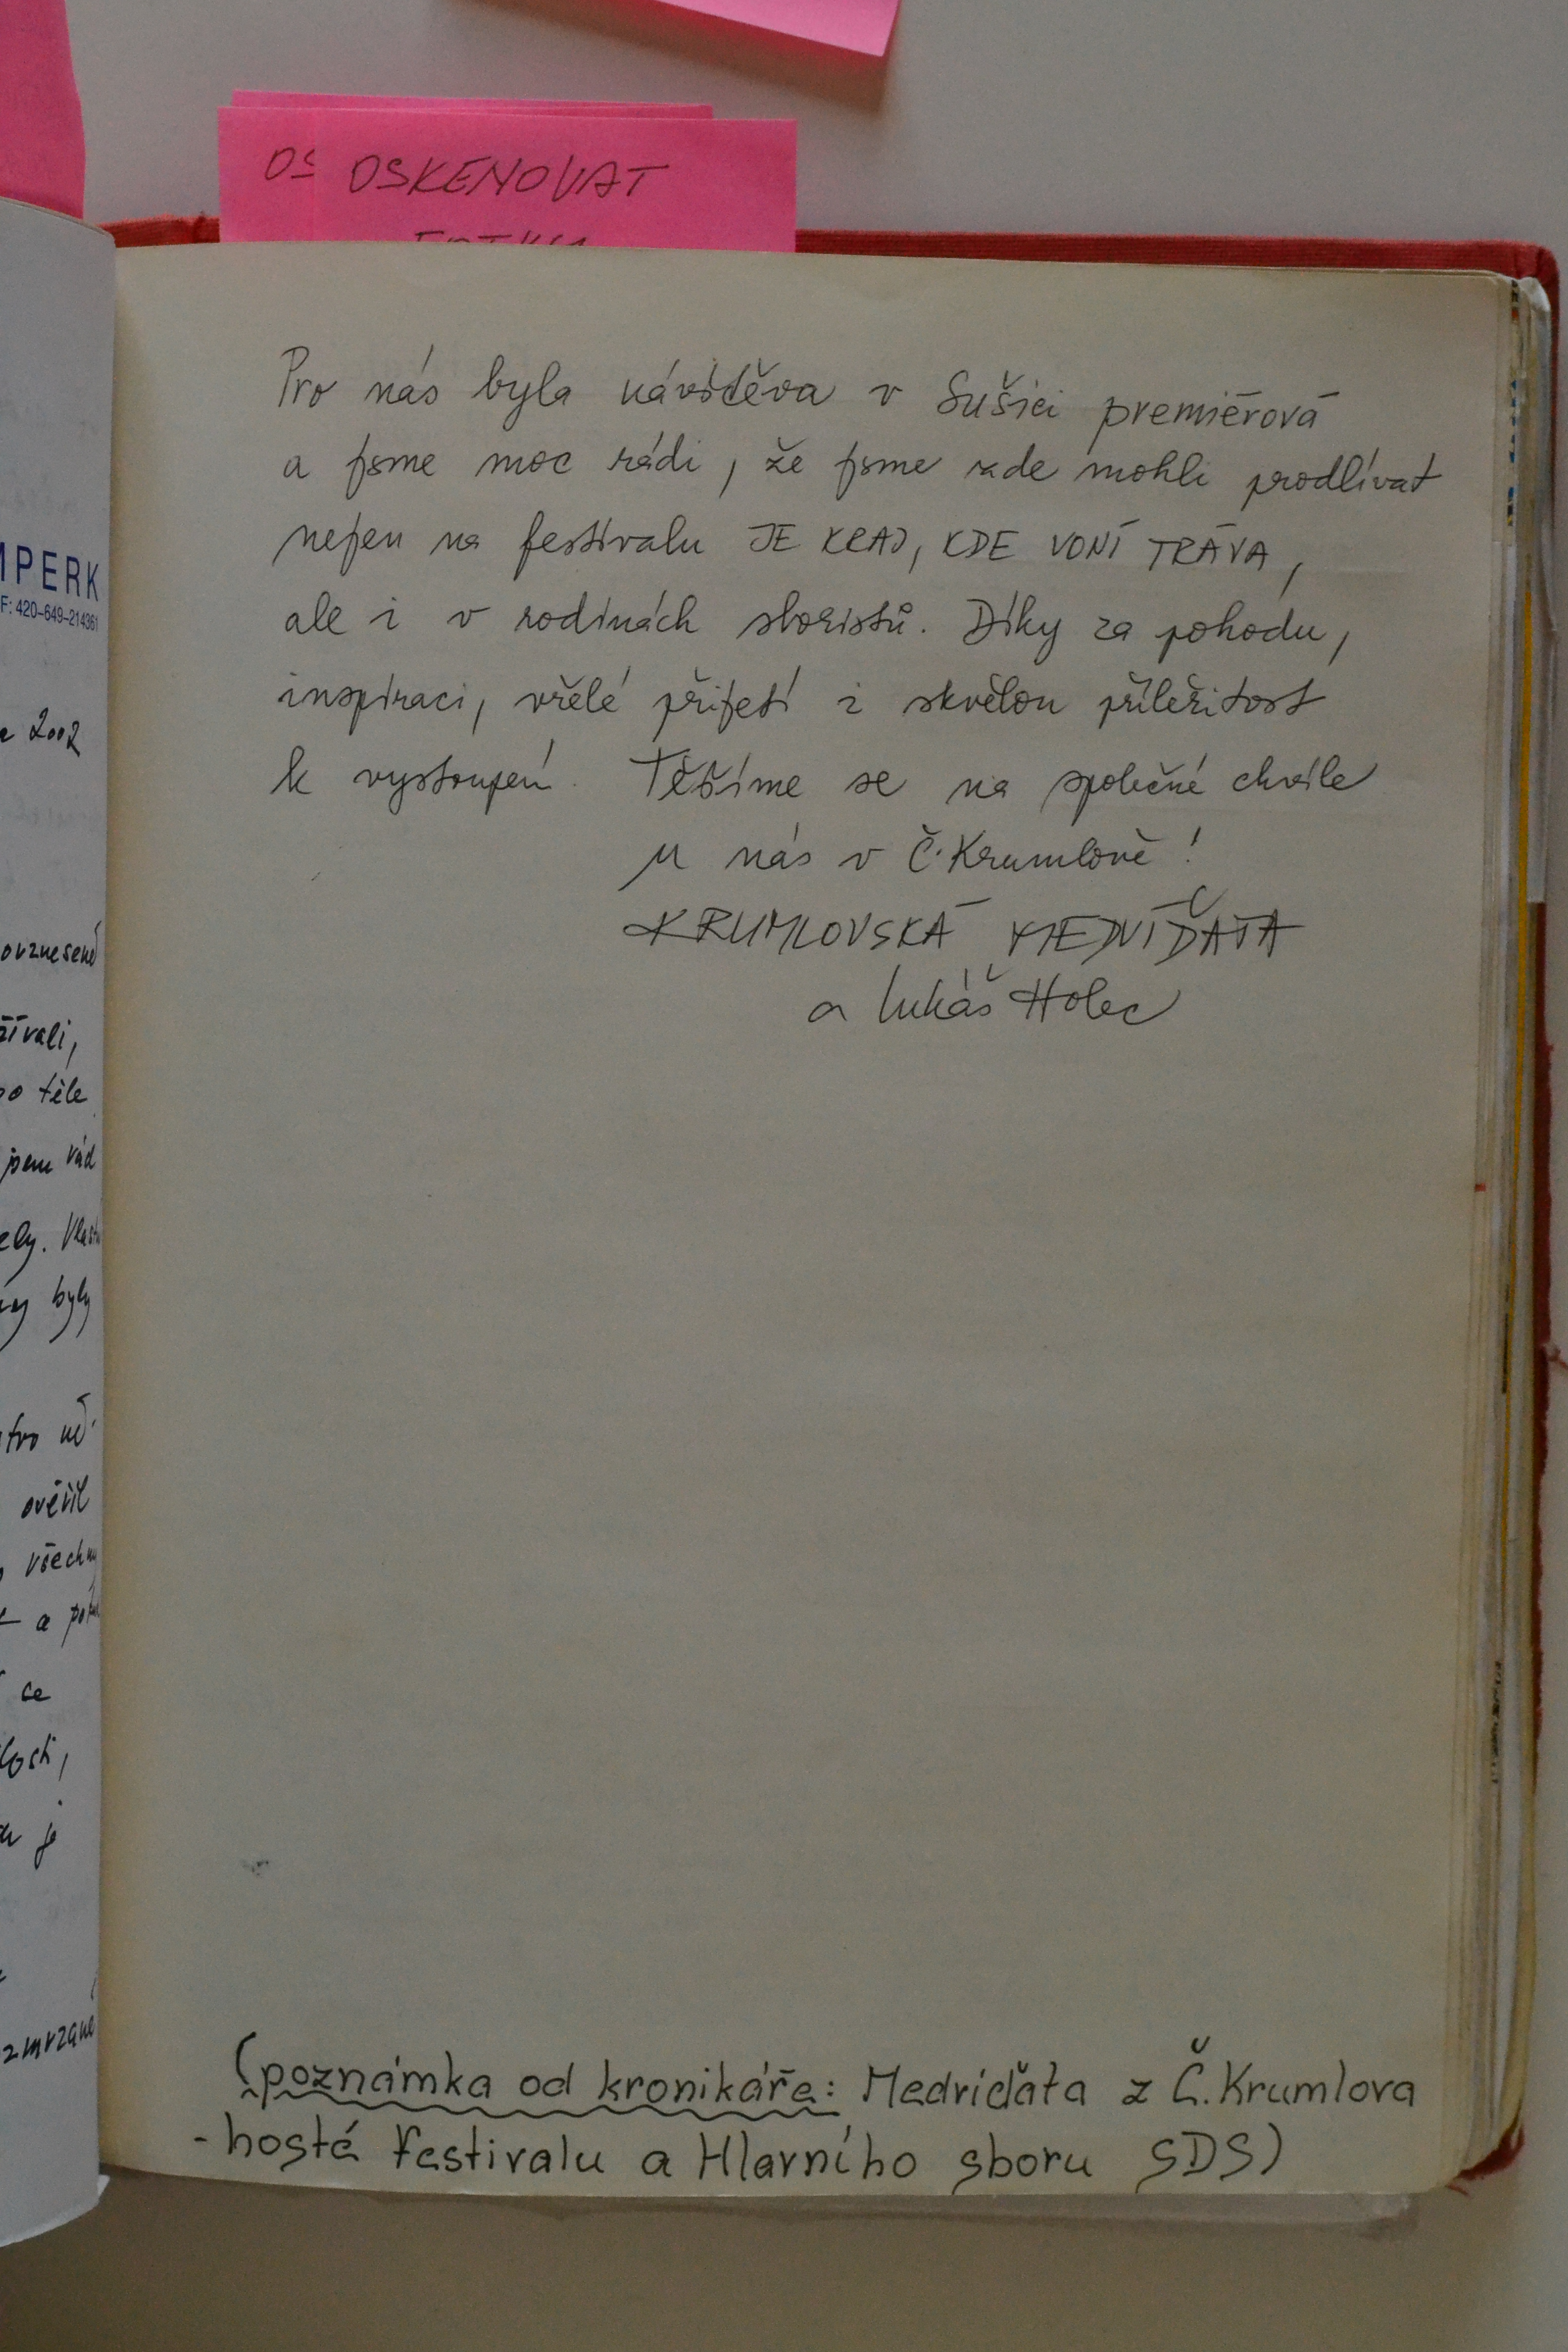 OS OSKENOVAT
MPERK
F: 420-649-214361
2002
žívali,
těle
jsem rád
byly
ověřil
všechny
ce
je
zmrzané
Pro nás byla návštěva v Sušici premiérová
a jsme moc rádi, že jsme zde mohli prodlívat
nejen na festivalu JE KRAJ, KDE VONÍ TRÁVA,
ale i v rodinách sboristů. Díky za pohodu,
inspiraci, vřelé přijetí i skvělou příležitost
k vystoupení. Těšíme se na společné chvíle
u nás v Č. Krumlově!
KRUMLOVSKÁ MEDVÍĎATA
a Lukáš Holec
(poznámka od kronikáře: Medvíďata z Č. Krumlova
- hosté festivalu a Hlavního sboru SDS)